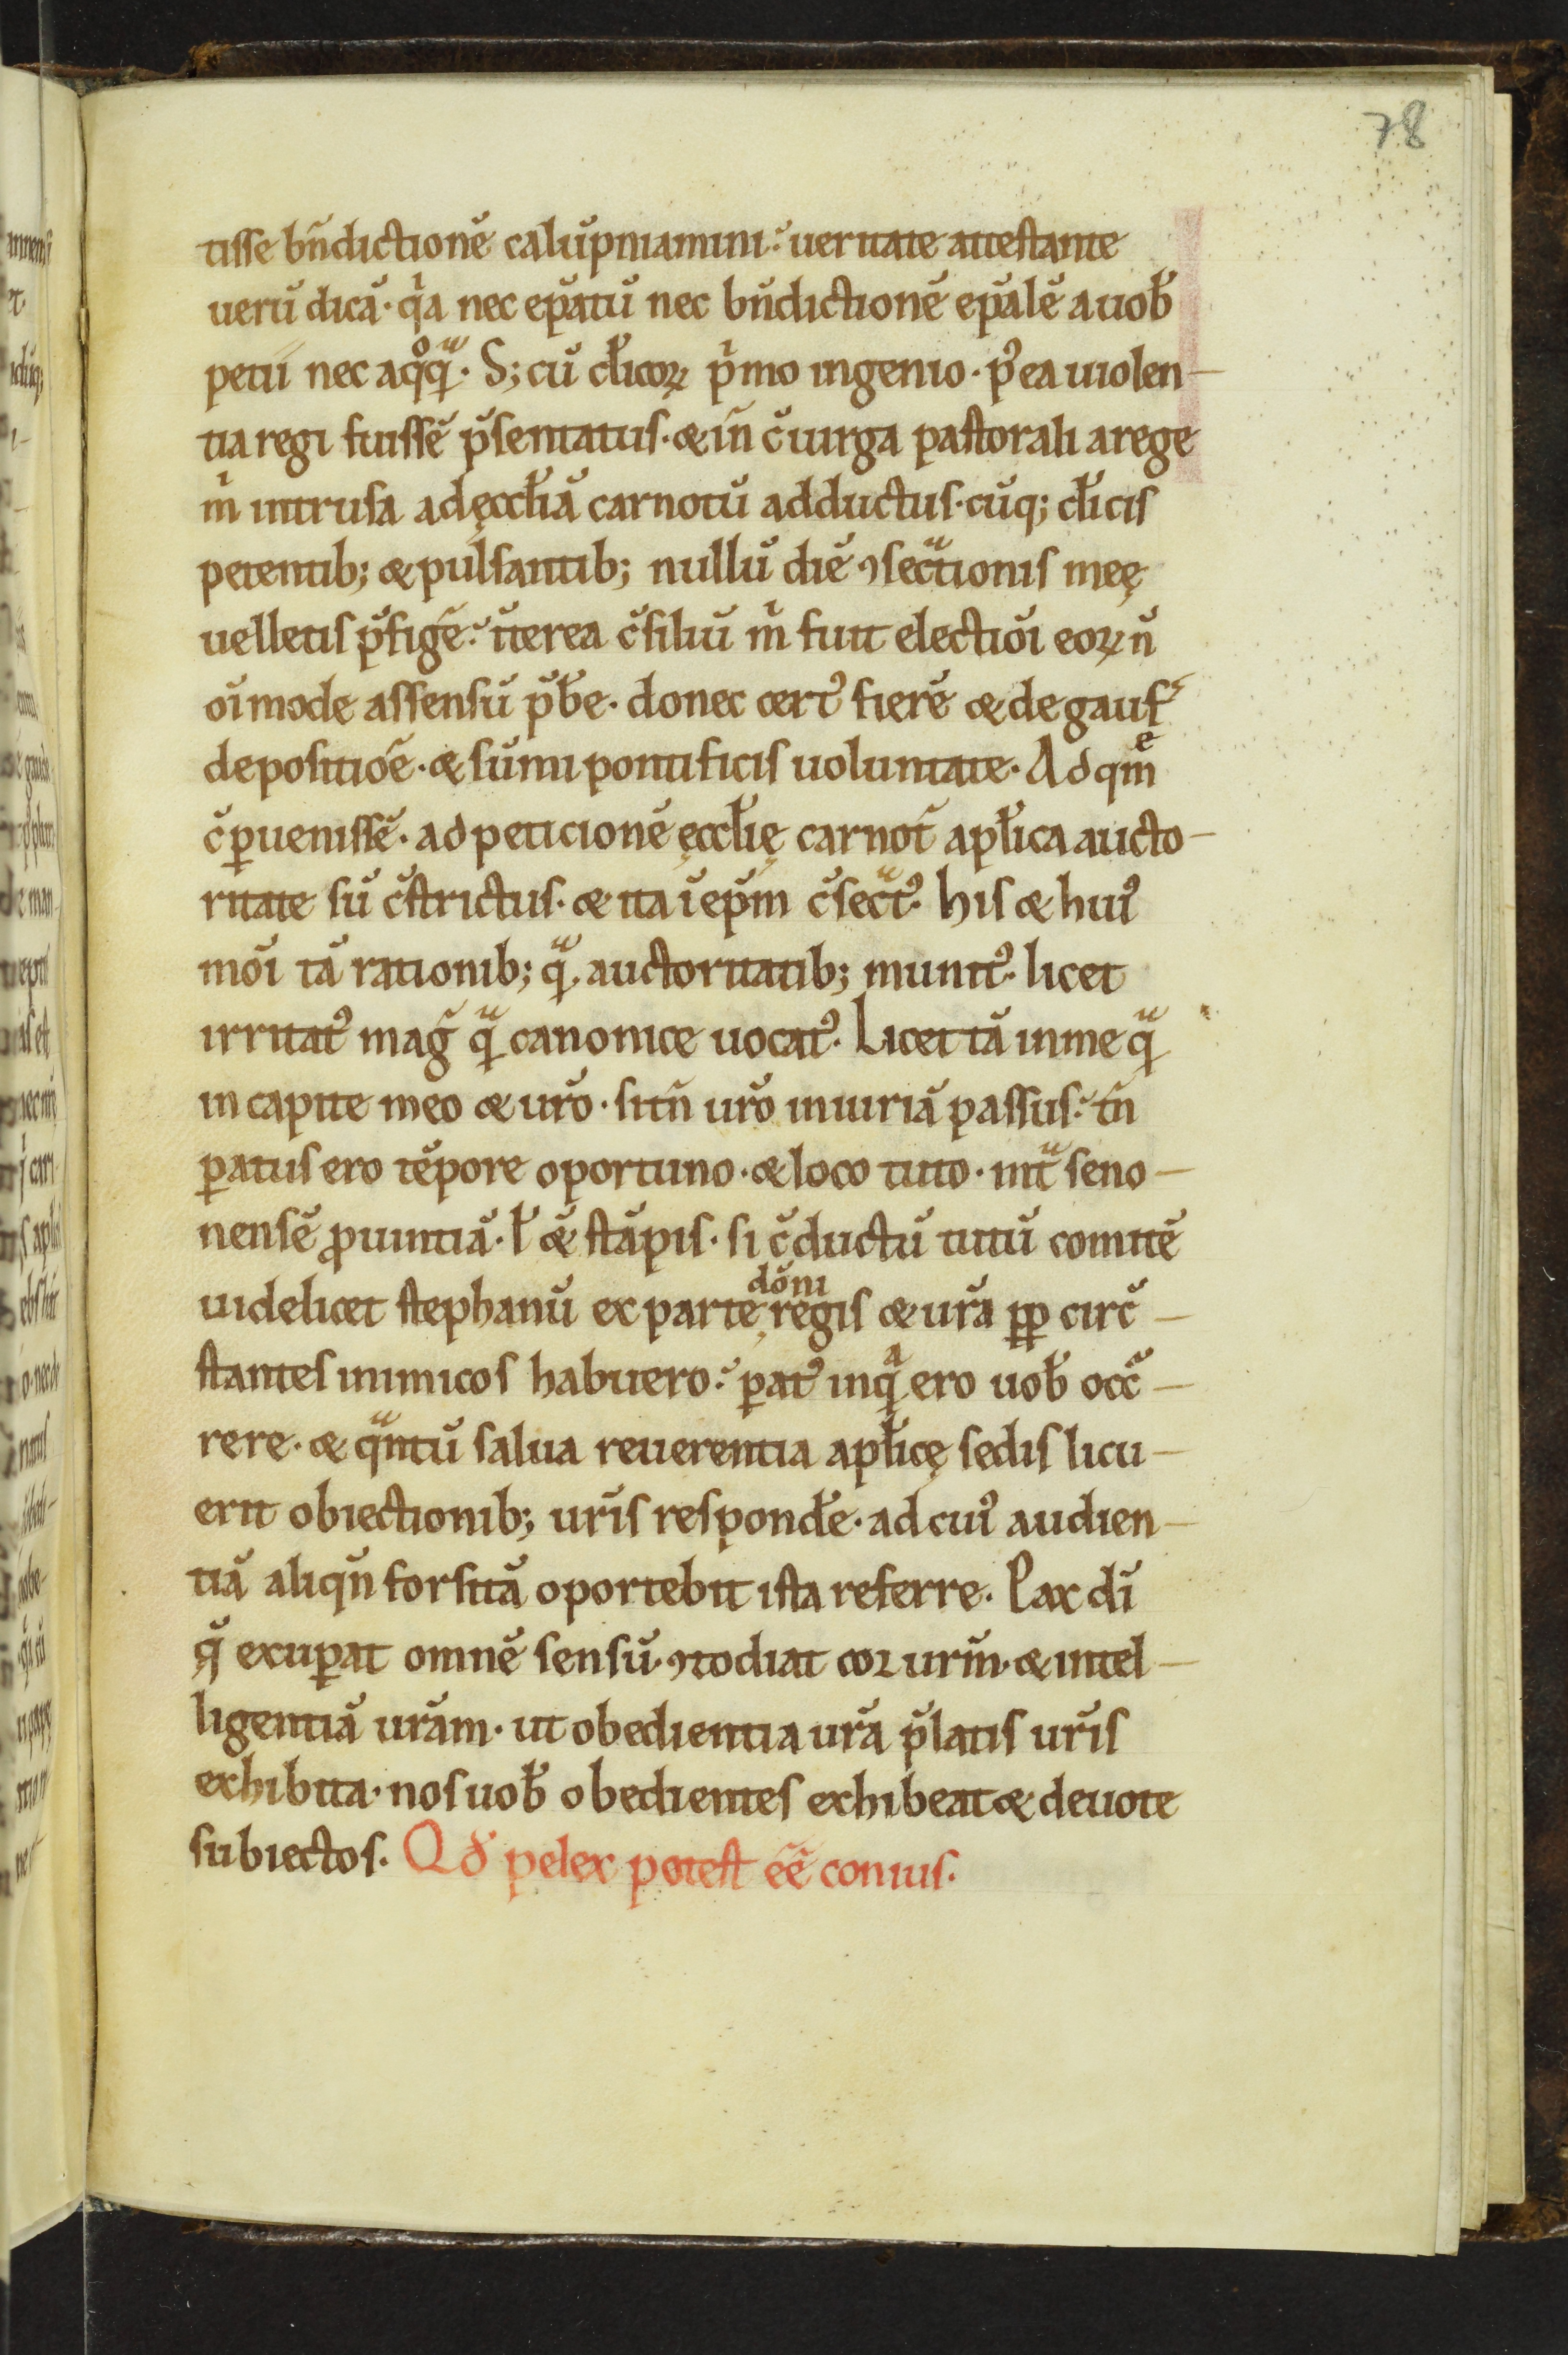 78
tisse bn̄dictionē calūpniamini. ueritate attestante
uerū dicā. qͥa nec ep̄atū nec bn̄dictionē ep̄alē a uob̄
petii nec a qͦqᷓ. S; cū cl̄icoꝝ pͥmo ingenio. pꝰea uiolen-
tia regi fuissē p̄sentatus. & in̄ c̄ uirga pastorali a rege
mͥ intrusa ad ęccl̄iā carnotū adductus. cūq; cl̄icis
petentib; & pulsantib; nullū diē ꝯsecᷓtionis meę
uelletis p̄figē. īterea c̄siliū mͥ fuit electiōi eoꝝ n̄
oīmode assensū p̄b̄e. donec certꝰ fierē & de gauf̄
depositiōē. & sūmi pontificis uoluntate. Ad qͤm
c̄ ꝑuenissē. ad peticionē ęccl̄ię carnot̄ apl̄ica aucto-
ritate sū c̄strictus. & ita ī ep̄m c̄secᷓtꝰ. his & huiꝰ
mōi tā rationib; qᷓ auctoritatib; munitꝰ. licet
irritatꝰ maḡ qᷓ canonice uocatꝰ. Licet tā in me qᷓ
in capite meo & ur̄o. sit n̄ ur̄o iniuriā passus. tn̄
ꝑatus ero tēpore oportuno. & loco tuto. intᷓ seno-
nensē ꝓuintiā. l̄ &̄ stāpis. si c̄ductū tutū comitē
uidelicet stephanū ex parte dōni regis & ur̄a ꝓꝑ circ̄-
stantes inimicos habuero. ꝑatꝰ inqͣ ero uob̄ occ̄-
rere. & qᷓntū salua reuerentia apl̄icę sedis licu-
erit obiectionib; ur̄is respond̄e. ad cuiꝰ audien-
tiā aliqn̄ forsitā oportebit ista referre. Pax dī
q̄ exuꝑat omnē sensū. ꝯtodiat cor ur̄m. & intel-
ligentiā ur̄am. ut obedientia ur̄a p̄latis ur̄is
exhibita. nos uob̄ obedientes exhibeat & deuote
subiectos. Qd̄ pelex potest ēē coniuſ.